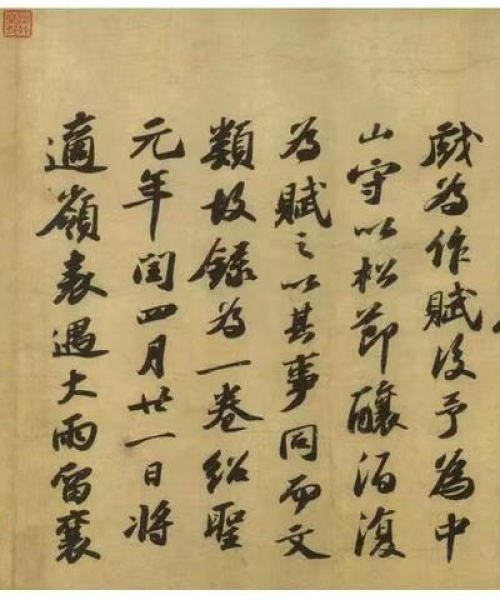 戱為作賦後予為中
山守以松節釀酒復
為賦之以其事同而文
類故録為一卷紹聖
元年閏四月廿一日將
適嶺表遇大雨留襄